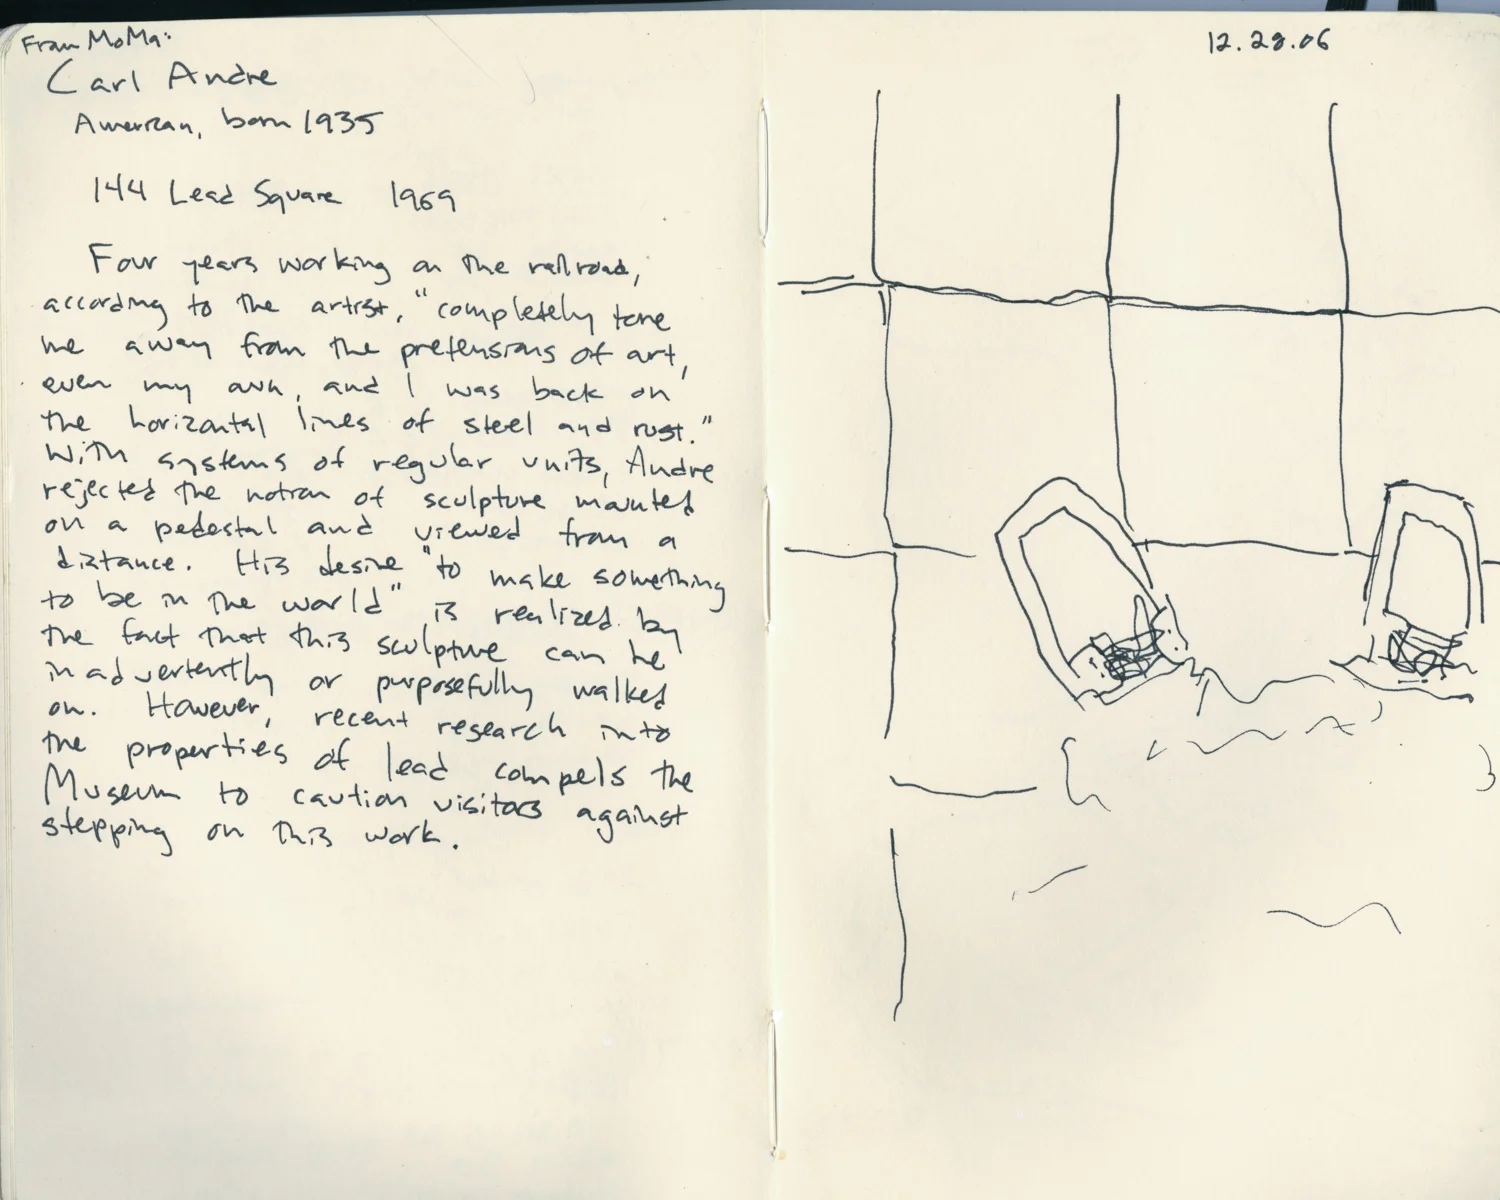 From MoMa:
Carl Andre
American, born 1935
144 Lead Square 1969
Four years working on the railroad,
according to the artist, "completely tore
me away from the pretensions of art,
even my own, and I was back on
the horizontal lines of steel and rust."
With systems of regular units, Andre
rejected the notion of sculpture mounted
on a pedestal and viewed from a
distance. His desire "to make something
to be in the world" is realized by
the fact that this sculpture can be
inadvertently or purposefully walked
on. However, recent research into
the properties of lead compels the
Museum to caution visitors against
stepping on this work.
12.28.06